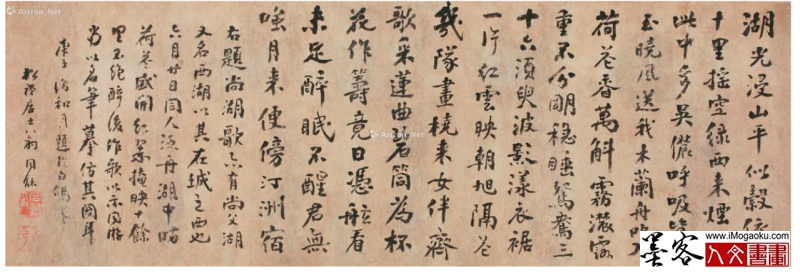 湖光浸山平似縠依
十里搖空綠西来煙
此中多吳儂呼吸
玉曉風送我木蘭舟
荷花香萬斛霧濃露
重不分明穩睡鴛鴦三
十六須臾波影漾衣裾
一片紅雲映朝旭隔花
幾隊畫橈来女伴齊
歌采蓮曲碧筒為杯
花作籌竟日憑舷看
未足醉眠不醒君無
嗤月来便傍汀洲宿
右題尚湖歌尚父湖
又名西湖以其在城之西也
六月廿日同人泛舟湖中時
荷花盛開紅翠掩映十餘
里不絕醉後作歌以示同游
當以名筆摹仿其圖耳
庚子
松禪居士翁同龢
Artron.Net
Artron.Net
墨客
www.iMogaoku.com